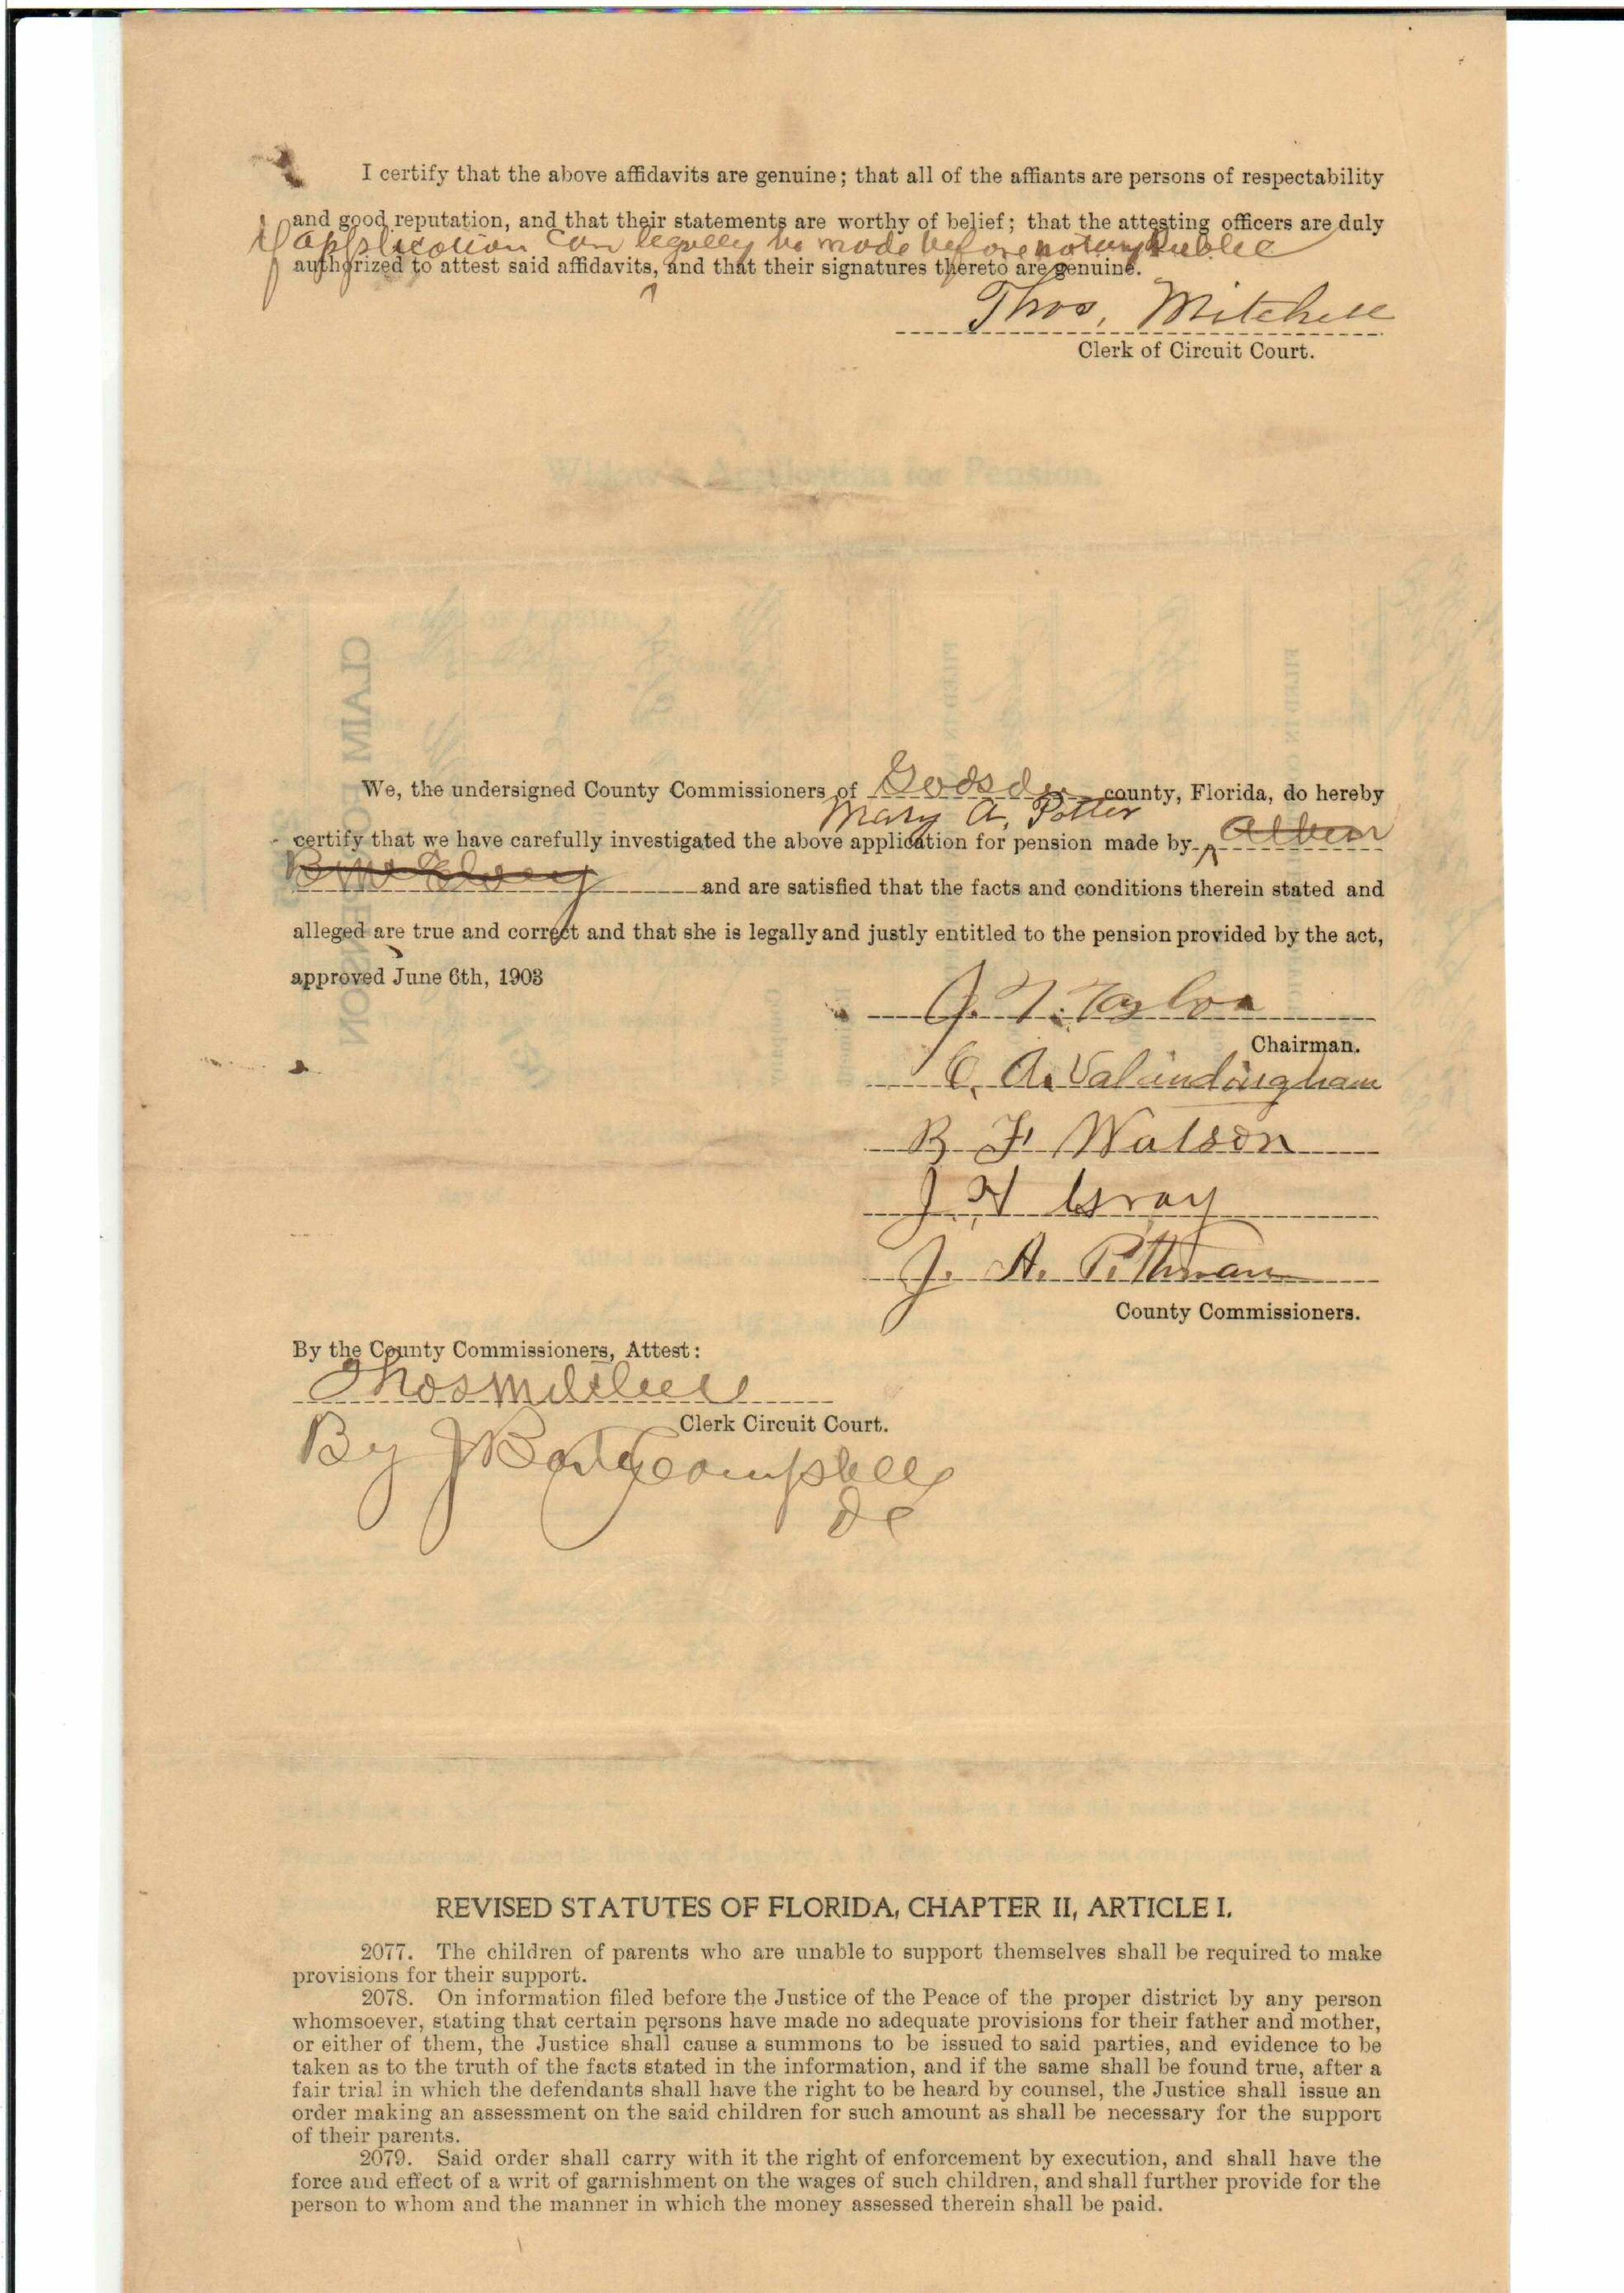 I certify that the above affidavits are genuine; that all of the affiants are persons of respectability
and good reputation, and that their statements are worthy of belief; that the attesting officers are duly
if application can legally be made before notary Public
authorized to attest said affidavits, and that their signatures thereto are genuine.
Thos. Mitchell
Clerk of Circuit Court.
Widow's Application for Pension.
CLAIM FOR PENSION
We, the undersigned County Commissioners of Gadsden county, Florida, do hereby
Mary A. Potter
certify that we have carefully investigated the above application for pension made by
and are satisfied that the facts and conditions therein stated and
alleged are true and correct and that she is legally and justly entitled to the pension provided by the act,
approved June 6th, 1903
Taylor
Chairman.
C. A. Valandingham
B F Watson
J H Gray
J. A. Pittman
County Commissioners.
By the County Commissioners, Attest:
Thos Mitchell
Clerk Circuit Court.
By J Campbell
DC
REVISED STATUTES OF FLORIDA, CHAPTER II, ARTICLE I.
2077. The children of parents who are unable to support themselves shall be required to make
provisions for their support.
2078. On information filed before the Justice of the Peace of the proper district by any person
whomsoever, stating that certain persons have made no adequate provisions for their father and mother,
or either of them, the Justice shall cause a summons to be issued to said parties, and evidence to be
taken as to the truth of the facts stated in the information, and if the same shall be found true, after a
fair trial in which the defendants shall have the right to be heard by counsel, the Justice shall issue an
order making an assessment on the said children for such amount as shall be necessary for the support
of their parents.
2079. Said order shall carry with it the right of enforcement by execution, and shall have the
force and effect of a writ of garnishment on the wages of such children, and shall further provide for the
person to whom and the manner in which the money assessed therein shall be paid.